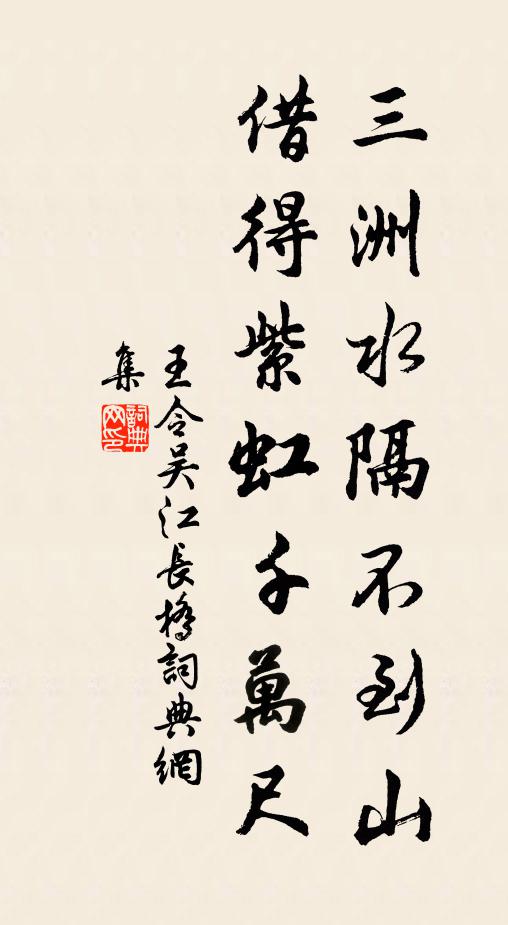 三洲水隔不到山
借得紫虹千萬尺
王令吳江長橋詞典網
集
詞典
网印